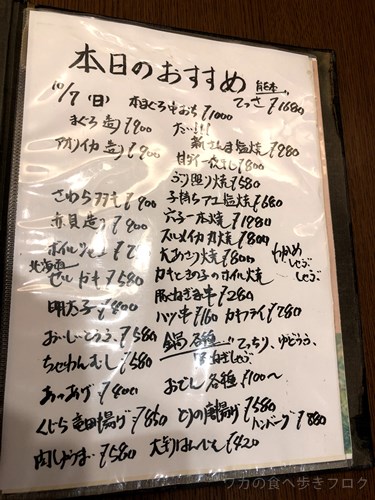 本日のおすすめ
10/7(日) 本まぐろ中おち ¥1000
熊本 てっさ ¥1680
まぐろ造り ¥900
アオリイカ造り ¥900
新さんま塩焼 ¥980
甘ダイ一夜干し ¥800
ぶり照り焼 ¥580
さわらタタキ ¥900
子持ちアユ塩焼 ¥680
赤貝造り ¥900
穴子一本焼 ¥1980
スルメイカ丸焼 ¥800
ホイル
大あさり焼 ¥800
わかめ
北海道 セルカキ ¥580
カキときの子のホイル焼
明太子 ¥800
豚ねぎ串 ¥280
ハツ串 ¥160 カキフライ ¥780
おぼろどうふ ¥580
鍋各種 てっちり、ゆどうふ、
ちゃわんむし ¥580
あつあげ ¥400
おでん各種 ¥100〜
くじら竜田揚げ ¥850 とりの唐揚げ ¥580 ハンバーグ ¥880
肉じゃが ¥580 大判はんぺん ¥420
ワカの食べ歩きブログ